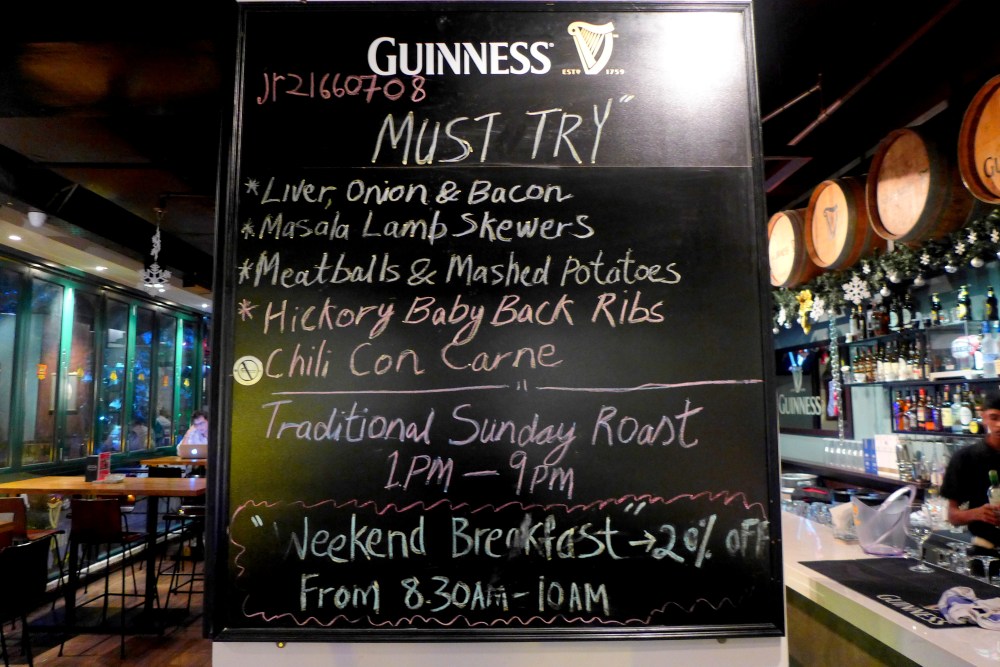 GUINNESS
ESTD 1759
jr21660708
MUST TRY"
*Liver, Onion & Bacon
*Masala Lamb Skewers
*Meatballs & Mashed Potatoes
*Hickory Baby Back Ribs
Chili Con Carne
"
Traditional Sunday Roast
1.PM — 9PM
"Weekend Breakfast" → 20% OFF
From 8.30AM - 10AM
GUINNESS
GUINNESS